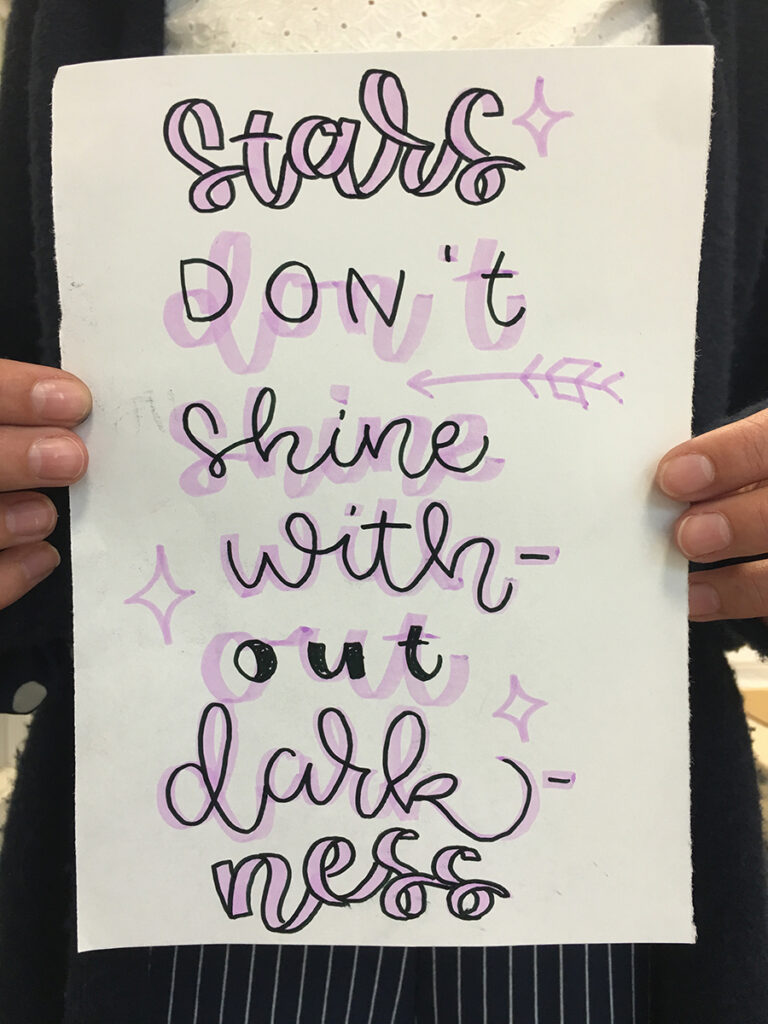 stars
DON't
shine
with-
out
dark-
ness